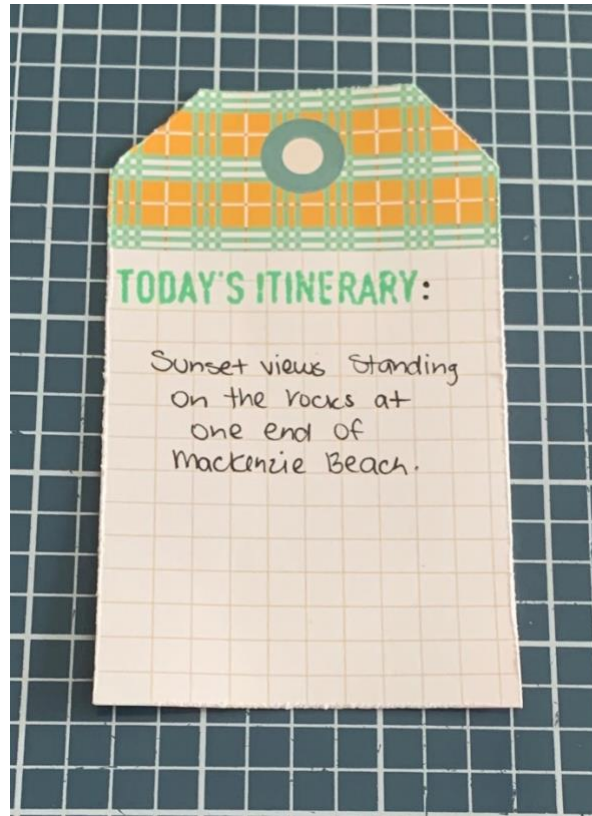 TODAY'S ITINERARY:
Sunset views Standing
on the rocks at
one end of
Mackenzie Beach.